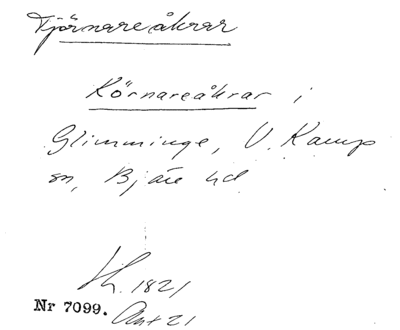 Tjörnareåkrar
Körnareåkrar i
Glimminge, V. Karup
sn, Bjäre hd
Lh. 1821
Nr 7099. Akt 21